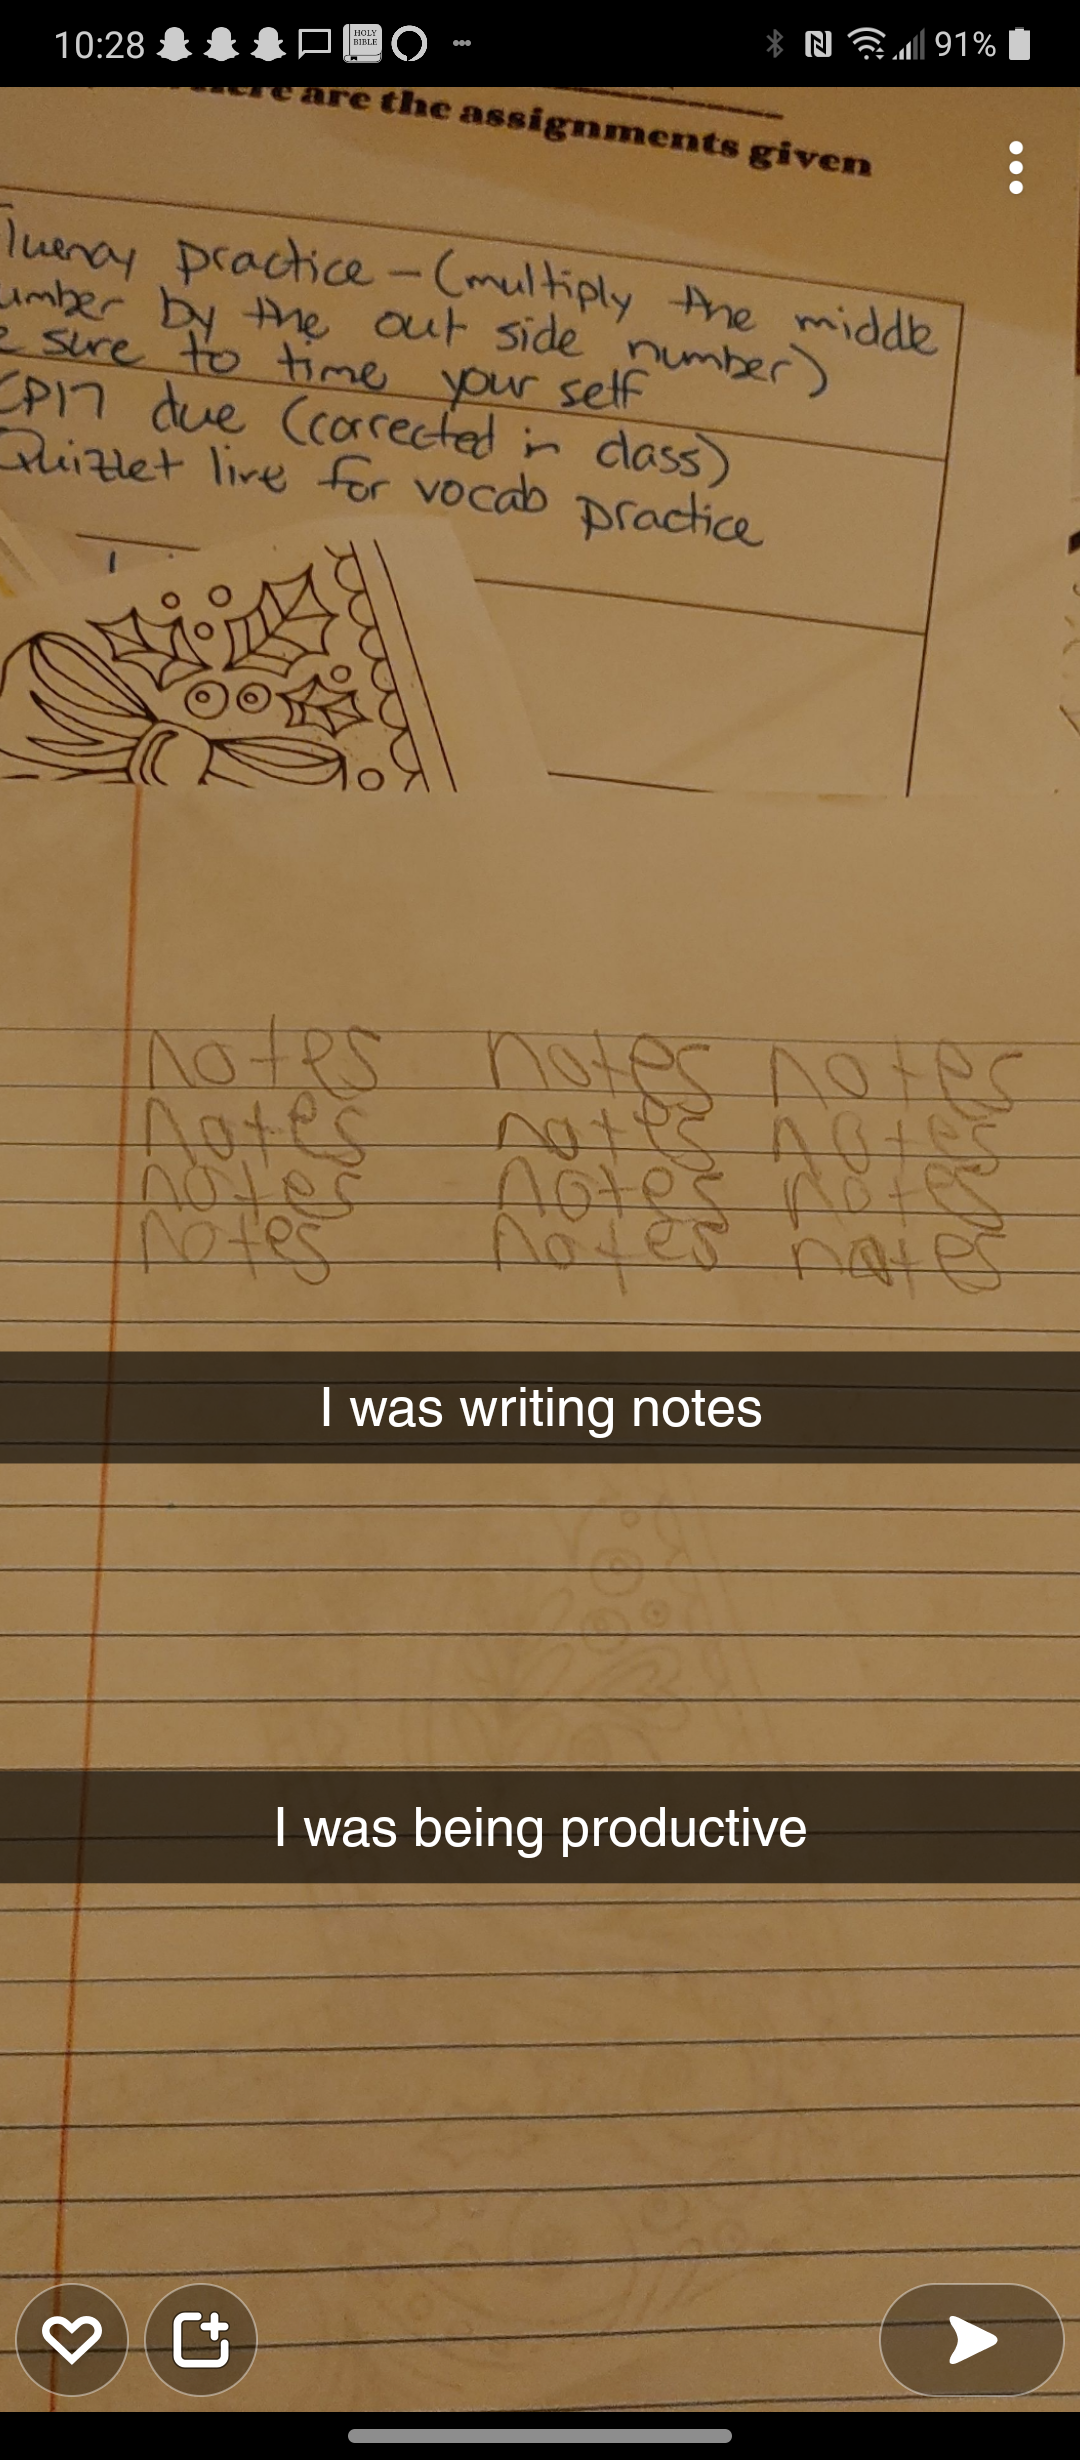 10:28 HOLY BIBLE 91%
are the assignments given
practice - (multiply the middle
by the out side number)
sure to time your self
due (corrected in class)
Quizlet live for vocab practice
notes notes notes
notes notes notes
notes notes notes
notes notes notes
I was writing notes
I was being productive